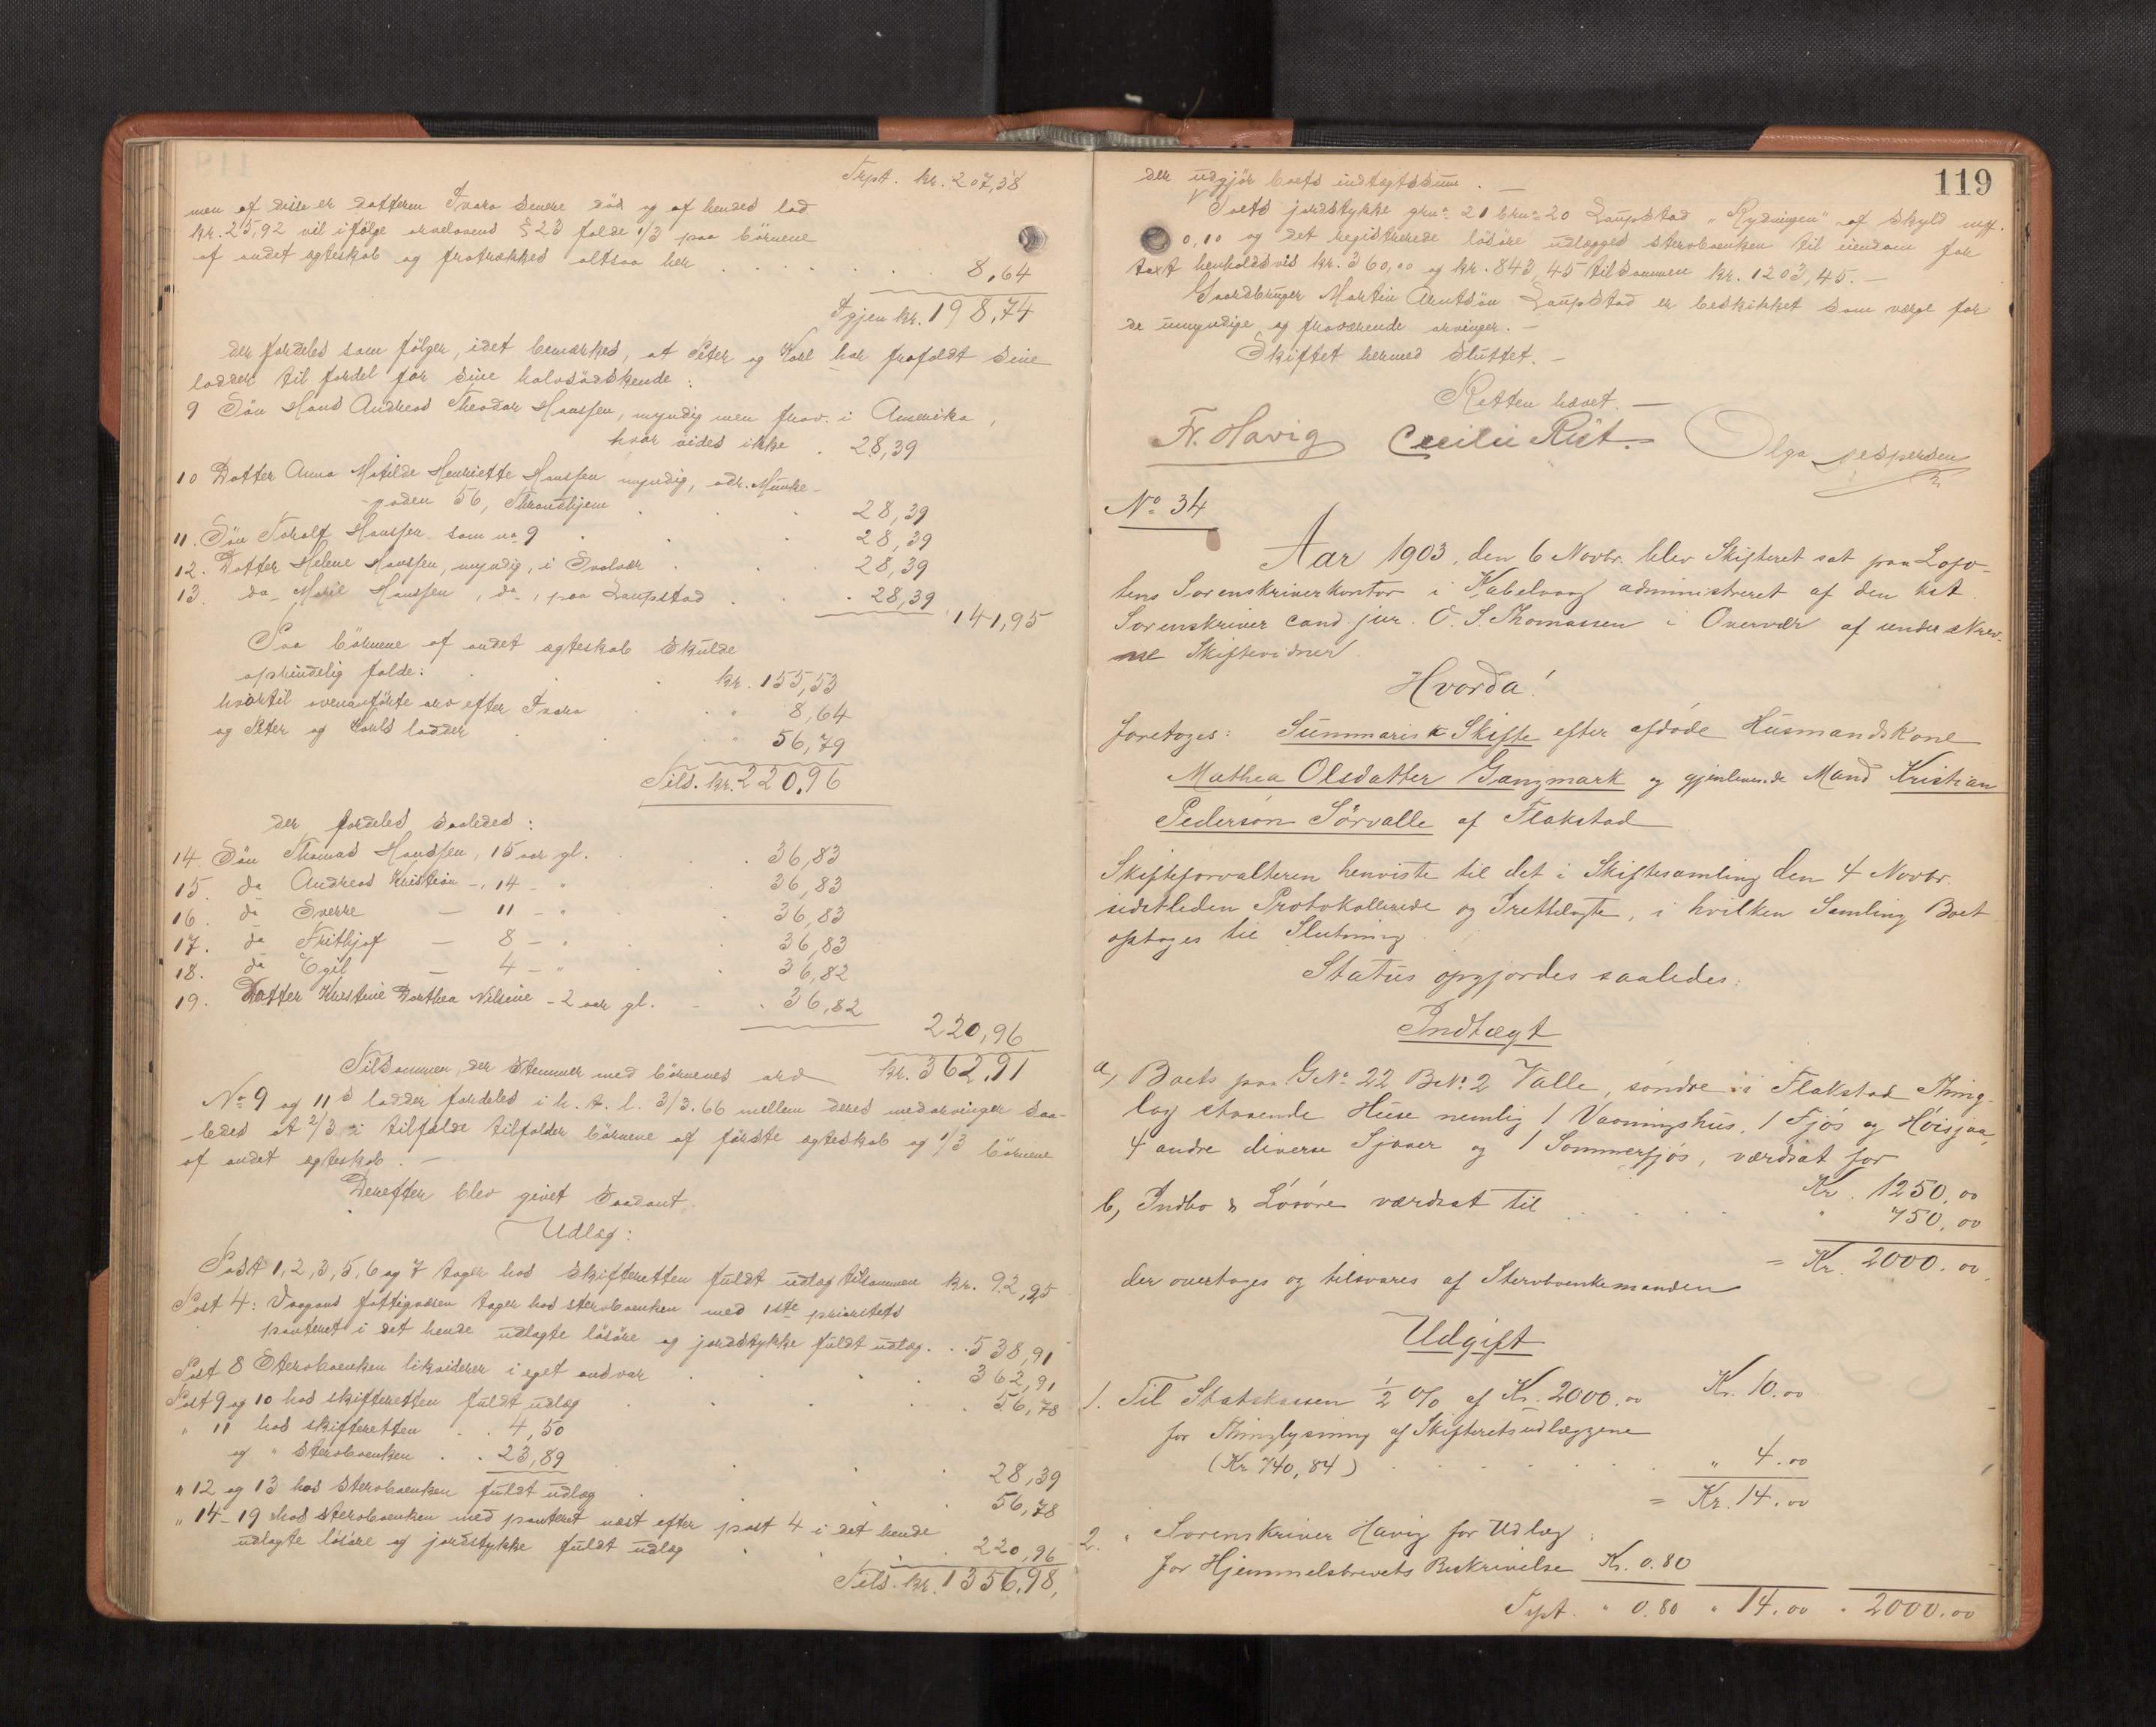 Trpt. kr. 207,38
men af disse er datteren Ivara senere död og af hendes lod
kr. 25,92 vil ifölge arvelovens § 23 falde 1/3 paa börnene
af andet egteskab og fratrækkes altsaa her . . . . . . 8,64
Igjen kr. 198,74
der fordeles som fölger, idet bemærkes, at Peter og Karl har frafaldt sine
lodder til fordel for sine halvsödskende:
9 Sön Hans Andreas Theodor Hanssen, myndig men frav. i Amerika,
hvor vides ikke . 28,39
10 Datter Anna Matilde Henriette Hanssen myndig, adr. Munke-
-gaden 56, Throndhjem . . . 28,39
11. Sön Toralf Hanssen som no 9 . . . 28,39
12. Datter Helene Hanssen, myndig, i Svolvær . . . 28,39
13. do Marie Hanssen, do, paa Laupstad . . . 28,39
141,95
Paa börnene af andet egteskab skulde
oprindelig falde: . . kr. 155,53
hvortil ovenanförte arv efter Ivara . . " 8,64
og Peter og Karls lodder . . . " 56,79
Tils. kr. 220,96
der fordeles saaledes:
14. Sön Thomas Hanssen, 15 aar gl. . . . 36,83
15. do Andreas Kristian -, 14 - " . 36,83
16. do Sverre — 11 - " . 36,83
17. do Frithjof — 8 - " . 36,83
18. do Egil — 4 - " . 36,82
19. Datter Kristine Dorthea Nilsine - 2 aar gl. - . 36,82
220,96
Tilsammen, der stemmer med börnenes arv kr. 362,91
No 9 og 11s lodder fordeles i h. t. l. 3/3. 66 mellem deres medarvinger saa-
-ledes at 2/3 i tilfælde tilfalder börnene af förste egteskab og 1/3 börnene
af andet egteskab. —
Derefter blev givet saadant
Udlæg:
Post 1, 2, 3, 5, 6 og 7 tager hos skifteretten fuldt udlæg tilsammen kr. 92,25
Post 4: Vaagans fattigvæsen tager hos sterboenken med 1ste prioritets
panteret i det hende udlagte lösöre og jordstykke fuldt udlæg . . 538,91
Post 8 Sterboenken likviderer i eget andvar . . . . 362,91
Post 9 og 10 hos skifteretten fuldt udlæg . . . . 56,78
" 11 hos skifteretten . . 4,50
og " sterboenken . . 23,89 . . . 28,39
" 12 og 13 hos sterboenken fuldt udlæg . . . . 56,78
" 14-19 hos sterboenken med panteret næst efter post 4 i det hende
udlagte lösöre og jordstykke fuldt udlæg . . . 220,96
Tils. kr. 1356,98,
119
der udgjör boets indtægtssum. —
Boets jordstykke grno 21 brno 20 Laupstad "Rydningen" af skyld mk.
0,10 og det registrerede lösöre udlægges sterboenken til eiendom for
taxt henholdsvis kr. 360,00 og kr. 843,45 tilsammen kr. 1203,45. —
Gaardbruger Martin Arntsön Laupstad er beskikket som værge for
de umyndige og fraværende arvinger. —
Skiftet hermed sluttet. —
Retten hævet. —
Fr. Havig Cecilie Rist. Olga Jespersen
No 34
Aar 1903, den 6 Novbr. blev Skifteret sat paa Lofo-
tens Sorenskriverkontor i Kabelvaag administreret af den kst.
Sorenskriver cand jur. O. S. Thomassen i Overvær af underskrev-
ne Skiftevidner.
Hvorda!
foretoges: Summarisk Skifte efter afdöde Husmandskone
Mathea Olsdatter Gangmark og gjenlevende Mand Kristian
Pedersøn Sörvalle af Flakstad
Skifteforvalteren henviste til det i Skiftesamling den 4 Novbr.
sidstleden Protokollerede og Irettelagte, i hvilken Samling Boet
optoges til Slutning.
Status opgjordes saaledes:
Indtægt
a, Boets paa GNo 22 BNo 2 Valle, söndre i Flakstad Thing-
lag staaende Huse nemlig 1 Vaaningshus, 1 Fjös og Höisjaa,
4 andre diverse Sjaaer og 1 Sommerfjös, værdsat for
Kr. 1250,00
b, Indbo & Lösöre værdsat til . . . . " 750,00
= Kr. 2000,00.
der overtoges og tilsvares af Sterboenkemanden
Udgift
1. Til Statskassen 1/2 % af Kr. 2000.00 Kr. 10.00
for Thinglysning af Skifteretsudlæggene
(Kr 740,84) . . . . . . " 4.00
= Kr. 14.00
2. " Sorenskriver Havig for Udlæg:
for Hjemmelsbrevets Beskrivelse Kr. 0.80
Trpt. " 0.80 " 14.00 " 2000.00